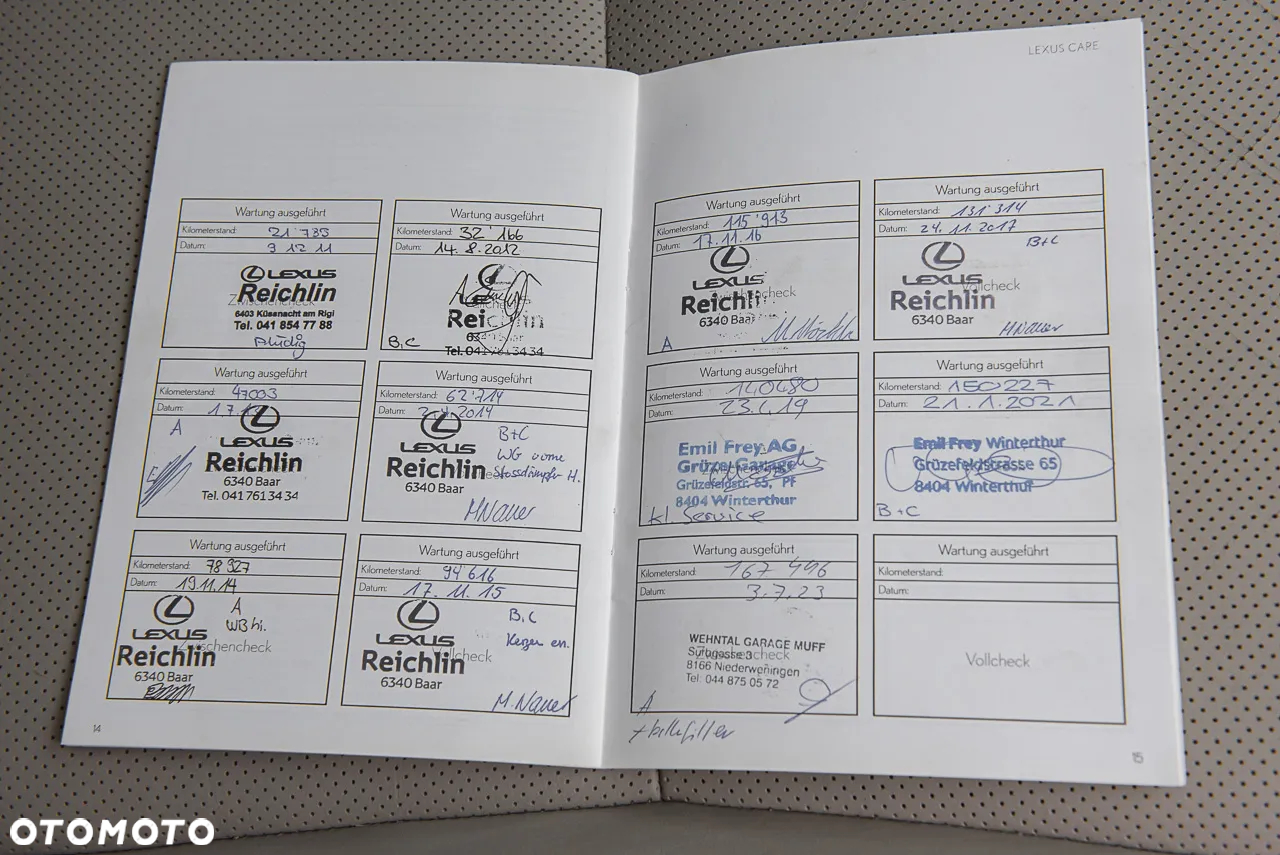 LEXUS CARE
Wartung ausgeführt
Kilometerstand: 21'735
Datum: 3 12 11
LEXUS
Zwischencheck
Reichlin
6403 Küssnacht am Rigi
Tel. 041 854 77 88
Wartung ausgeführt
Kilometerstand: 32'166
Datum: 14.8.2012
Reichlin
6340 Baar
B,C
Tel. 041 761 34 34
Wartung ausgeführt
Kilometerstand: 47003
Datum: 1.7.
A
LEXUS
Reichlin
6340 Baar
Tel. 041 761 34 34
Wartung ausgeführt
Kilometerstand: 62'714
Datum: 2014
B+C
LEXUS
WG vorne
Reichlin
Stossdämpfer H.
6340 Baar
M Nauer
Wartung ausgeführt
Kilometerstand: 78'327
Datum: 19.11.14
A
LEXUS
WB hi.
Zwischencheck
Reichlin
6340 Baar
Wartung ausgeführt
Kilometerstand: 94'616
Datum: 17.11.15
B,C
LEXUS
Kerzen en.
Reichlin
Vollcheck
6340 Baar
M.Nauer
14
Wartung ausgeführt
Kilometerstand: 115'913
Datum: 17.11.16
LEXUS
Zwischencheck
Reichlin
6340 Baar
A
Wartung ausgeführt
Kilometerstand: 131'314
Datum: 24.11.2017
B+C
LEXUS
Vollcheck
Reichlin
6340 Baar
M Nauer
Wartung ausgeführt
Kilometerstand: 140480
Datum: 23.1.19
Emil Frey AG
Grüze-Garage
Grüzefeldstr. 65, Pf
8404 Winterthur
kl. Service
Wartung ausgeführt
Kilometerstand: 150227
Datum: 21.1.2021
Emil Frey Winterthur
Grüzefeldstrasse 65
8404 Winterthur
B+C
Wartung ausgeführt
Kilometerstand: 167 496
Datum: 3.7.23
WEHNTAL GARAGE MUFF
Surbgasse 3
Zwischencheck
8166 Niederweningen
Tel. 044 875 05 72
A
Wartung ausgeführt
Kilometerstand:
Datum:
Vollcheck
15
OTOMOTO